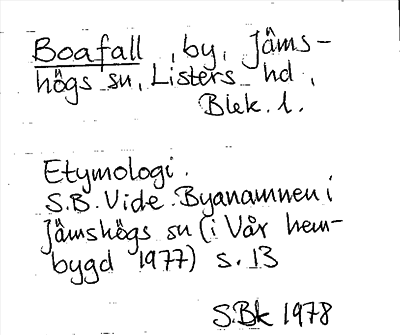 Boafall, by, Jäms-
högs sn, Listers hd,
Blek. l.
Etymologi.
S.B. Vide. Byanamnen i
Jämshögs sn (i Vår hem-
bygd 1977) s. 13
S.Bk 1978